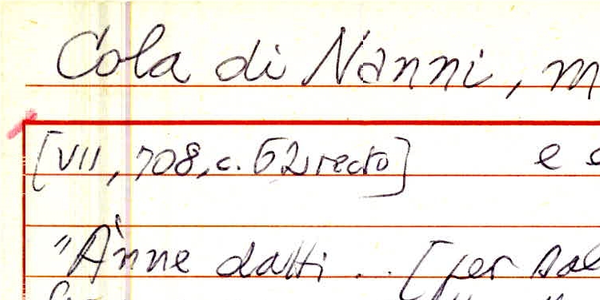 Cola di Nanni, m
[VII, 708, c. 52 recto] e
"Ànne datti ... [per sal